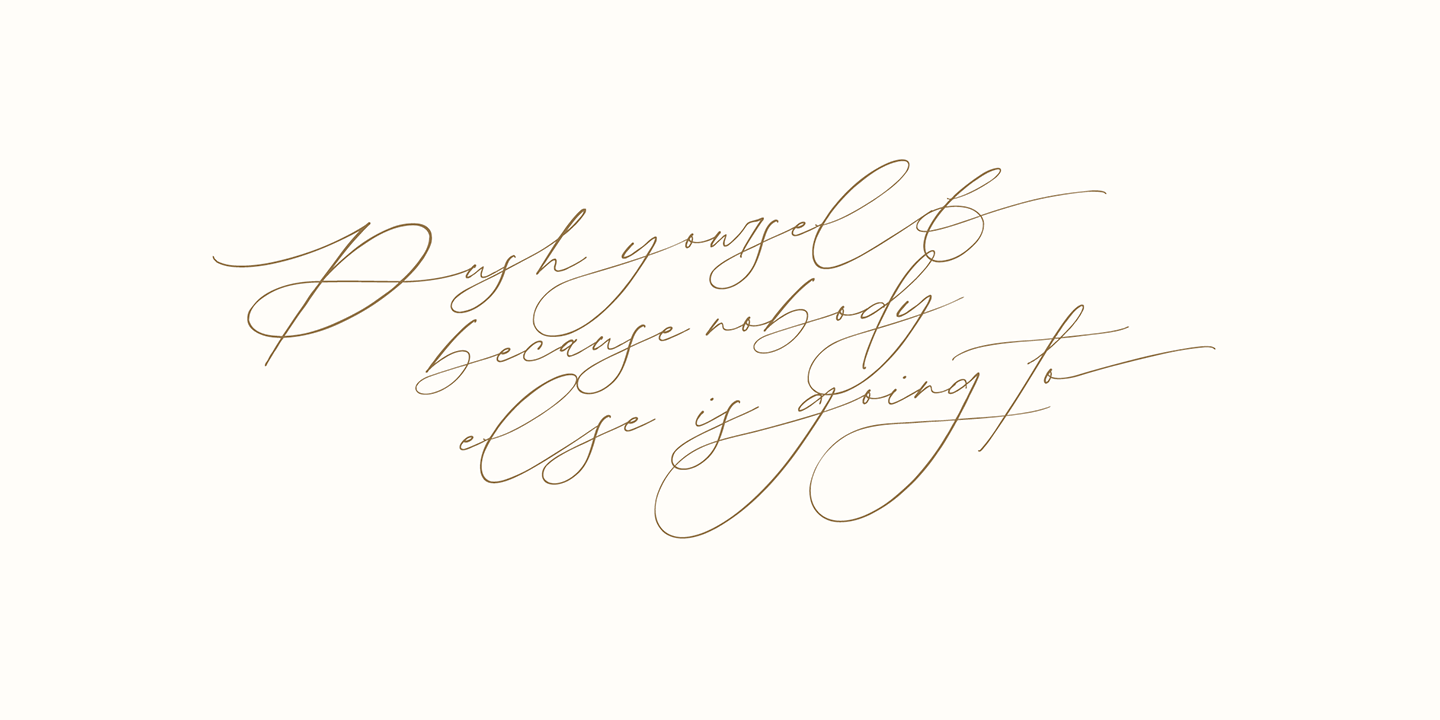 Push yourself
because nobody
else is going to